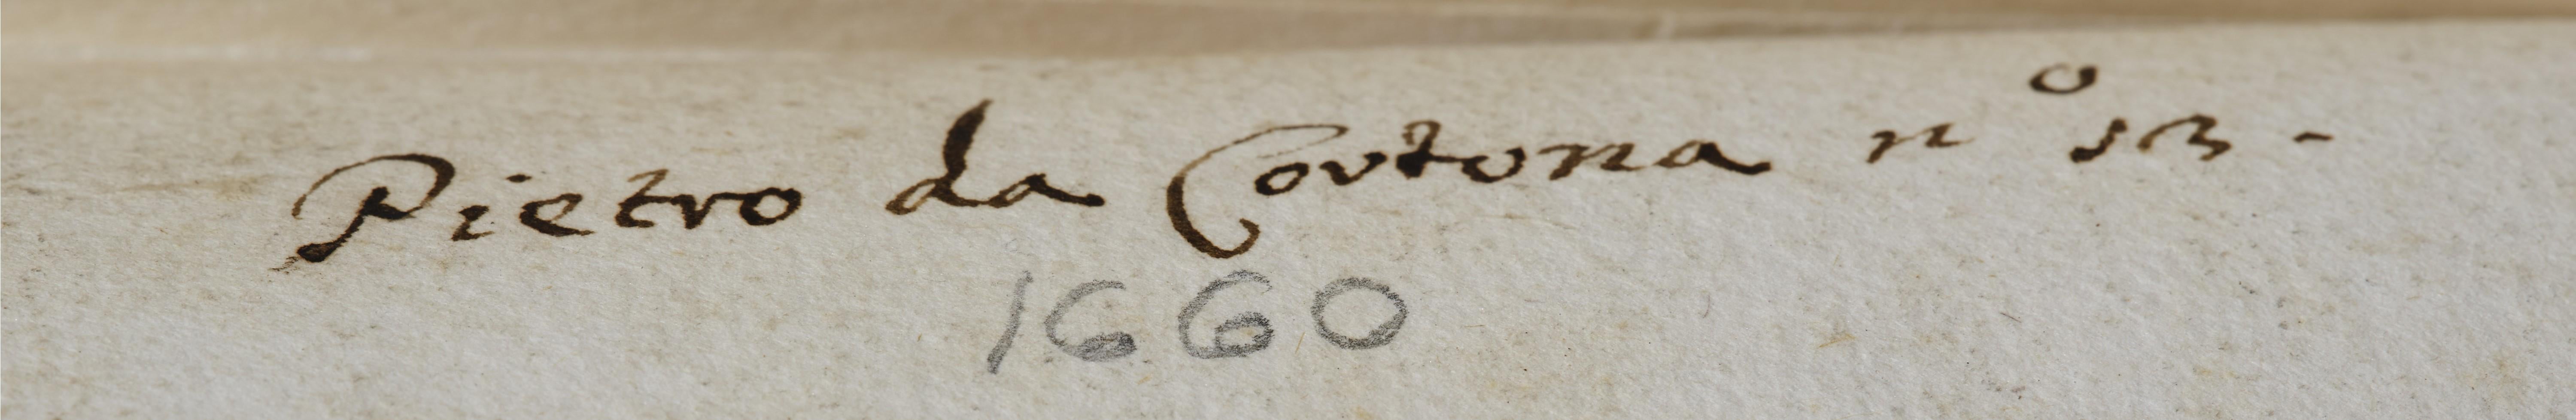 Pietro da Cortona nº
1660